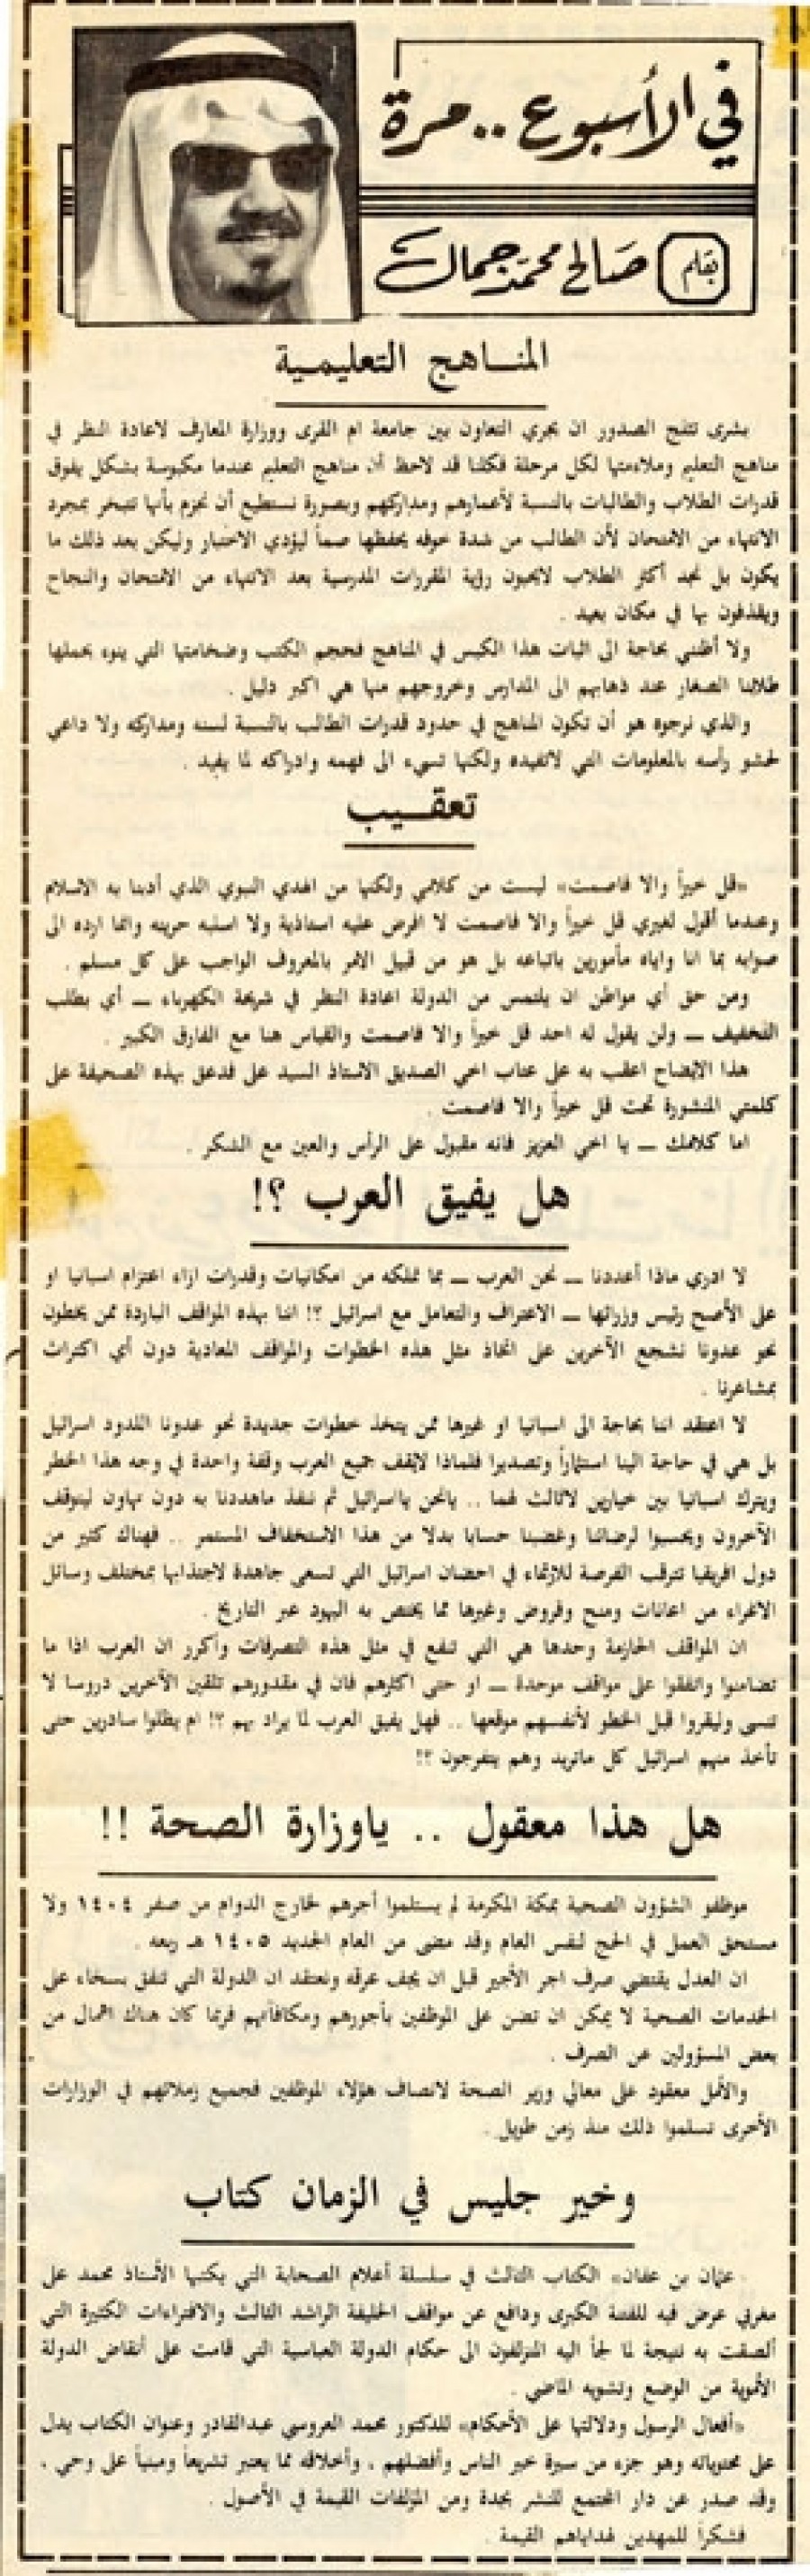 في الأسبوع .. مرة
بقلم صالح محمد جمال
المناهج التعليمية
بشرى تثلج الصدور ان يجري التعاون بين جامعة ام القرى ووزارة المعارف لاعادة النظر في
مناهج التعليم وملاءمتها لكل مرحلة فكلنا قد لاحظ أن مناهج التعليم عندما مكبوسة بشكل يفوق
قدرات الطلاب والطالبات بالنسبة لأعمارهم ومداركهم وبصورة نستطيع أن نجزم بأنها تتبخر بمجرد
الانتهاء من الامتحان لأن الطالب من شدة خوفه يحفظها صماً ليؤدي الاختبار وليكن بعد ذلك ما
يكون بل نجد أكثر الطلاب لايحبون رؤية المقررات المدرسية بعد الانتهاء من الامتحان والنجاح
ويقذفون بها في مكان بعيد .
ولا أظنني بحاجة الى اثبات هذا الكبس في المناهج فحجم الكتب وضخامتها التي ينوء بحملها
طلابنا الصغار عند ذهابهم الى المدارس وخروجهم منها هي اكبر دليل .
والذي نرجوه هو أن تكون المناهج في حدود قدرات الطالب بالنسبة لسنه ومداركه ولا داعي
لحشو رأسه بالمعلومات التي لاتفيده ولكنها تسيء الى فهمه وادراكه لما يفيد .
تعقيب
«قل خيراً والا فاصمت» ليست من كلامي ولكنها من الهدي النبوي الذي أدبنا به الاسلام
وعندما أقول لغيري قل خيراً والا فاصمت لا افرض عليه استاذية ولا اسلبه حريته وانما ارده الى
صوابه بما انا واياه مأمورين باتباعه بل هو من قبيل الامر بالمعروف الواجب على كل مسلم .
ومن حق أي مواطن ان يلتمس من الدولة اعادة النظر في شريحة الكهرباء ــ أي يطلب
التخفيف ــ ولن يقول له احد قل خيراً والا فاصمت والقياس هنا مع الفارق الكبير .
هذا الايضاح اعقب به على عتاب اخي الصديق الاستاذ السيد علي فدعق بهذه الصحيفة على
كلمتي المنشورة تحت قل خيراً والا فاصمت .
اما كلامك ــ يا اخي العزيز فانه مقبول على الرأس والعين مع الشكر .
هل يفيق العرب ؟!
لا ادري ماذا أعددنا ــ نحن العرب ــ بما نملكه من امكانيات وقدرات ازاء اعتزام اسبانيا او
على الأصح رئيس وزرائها ــ الاعتراف والتعامل مع اسرائيل ؟! اننا بهذه المواقف الباردة ممن يخطون
نحو عدونا نشجع الآخرين على اتخاذ مثل هذه الخطوات والمواقف المعادية دون أي اكتراث
بمشاعرنا .
لا اعتقد اننا بحاجة الى اسبانيا او غيرها ممن يتخذ خطوات جديدة نحو عدونا اللدود اسرائيل
بل هي في حاجة الينا استثماراً وتصديرا فلماذا لايقف جميع العرب وقفة واحدة في وجه هذا الخطر
ويترك اسبانيا بين خيارين لاثالث لهما .. يانحن يااسرائيل ثم ننفذ ماهددنا به دون تهاون ليتوقف
الآخرون ويحسبوا لرضائنا وغضبنا حسابا بدلا من هذا الاستخفاف المستمر .. فهناك كثير من
دول افريقيا تترقب الفرصة للارتماء في احضان اسرائيل التي تسعى جاهدة لاجتذابها بمختلف وسائل
الاغراء من اعانات ومنح وقروض وغيرها مما يختص به اليهود عبر التاريخ .
ان المواقف الحازمة وحدها هي التي تنفع في مثل هذه التصرفات وأكرر ان العرب اذا ما
تضامنوا واتفقوا على مواقف موحدة ــ او حتى اكثرهم فان في مقدورهم تلقين الآخرين دروسا لا
تنسى وليقروا قبل الخطو لأنفسهم موقعها .. فهل يفيق العرب لما يراد بهم ؟! ام يظلوا سادرين حتى
تأخذ منهم اسرائيل كل ماتريد وهم يتفرجون ؟!
هل هذا معقول .. ياوزارة الصحة !!
موظفو الشؤون الصحية بمكة المكرمة لم يستلموا أجرهم لخارج الدوام من صفر ١٤٠٤ ولا
مستحق العمل في الحج لنفس العام وقد مضى من العام الجديد ١٤٠٥ هـ ربعه .
ان العدل يقتضي صرف اجر الأجير قبل ان يجف عرقه ونعتقد ان الدولة التي تنفق بسخاء على
الخدمات الصحية لا يمكن ان تضن على الموظفين بأجورهم ومكافآتهم فربما كان هناك اهمال من
بعض المسؤولين عن الصرف .
والأمل معقود على معالي وزير الصحة لانصاف هؤلاء الموظفين فجميع زملائهم في الوزارات
الأخرى تسلموا ذلك منذ زمن طويل .
وخير جليس في الزمان كتاب
عثمان بن عفان» الكتاب الثالث في سلسلة أعلام الصحابة التي يكتبها الأستاذ محمد علي
مغربي عرض فيه للفتنة الكبرى ودافع عن مواقف الخليفة الراشد الثالث والافتراءات الكثيرة التي
ألصقت به نتيجة لما لجأ اليه المتزلفون الى حكام الدولة العباسية التي قامت على أنقاض الدولة
الأموية من الوضع وتشويه الماضي .
«أفعال الرسول ودلالتها على الأحكام» للدكتور محمد العروسي عبدالقادر وعنوان الكتاب يدل
على محتوياته وهو جزء من سيرة خير الناس وأفضلهم ، وأخلاقه مما يعتبر تشريعاً ومبنياً على وحي ،
وقد صدر عن دار المجتمع للنشر بجدة ومن المؤلفات القيمة في الأصول .
فشكراً للمهدين لهداياهم القيمة .